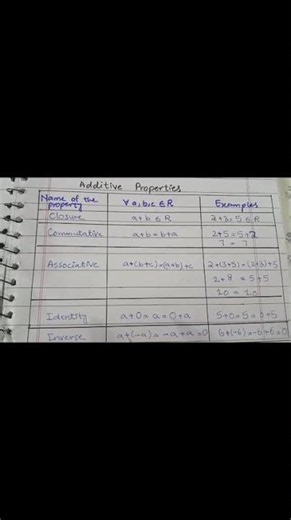 Additive Properties
Name of the property ∀ a,b,c ∈ R Examples
Closure a+b ∈ R 2+3=5 ∈ R
Commutative a+b=b+a 2+5=5+2
7=7
Associative a+(b+c)=(a+b)+c 2+(3+5)=(2+3)+5
2+8=5+5
10=10
Identity a+0=a=0+a 5+0=5=0+5
Inverse a+(-a)=-a+a=0 6+(-6)=-6+6=0